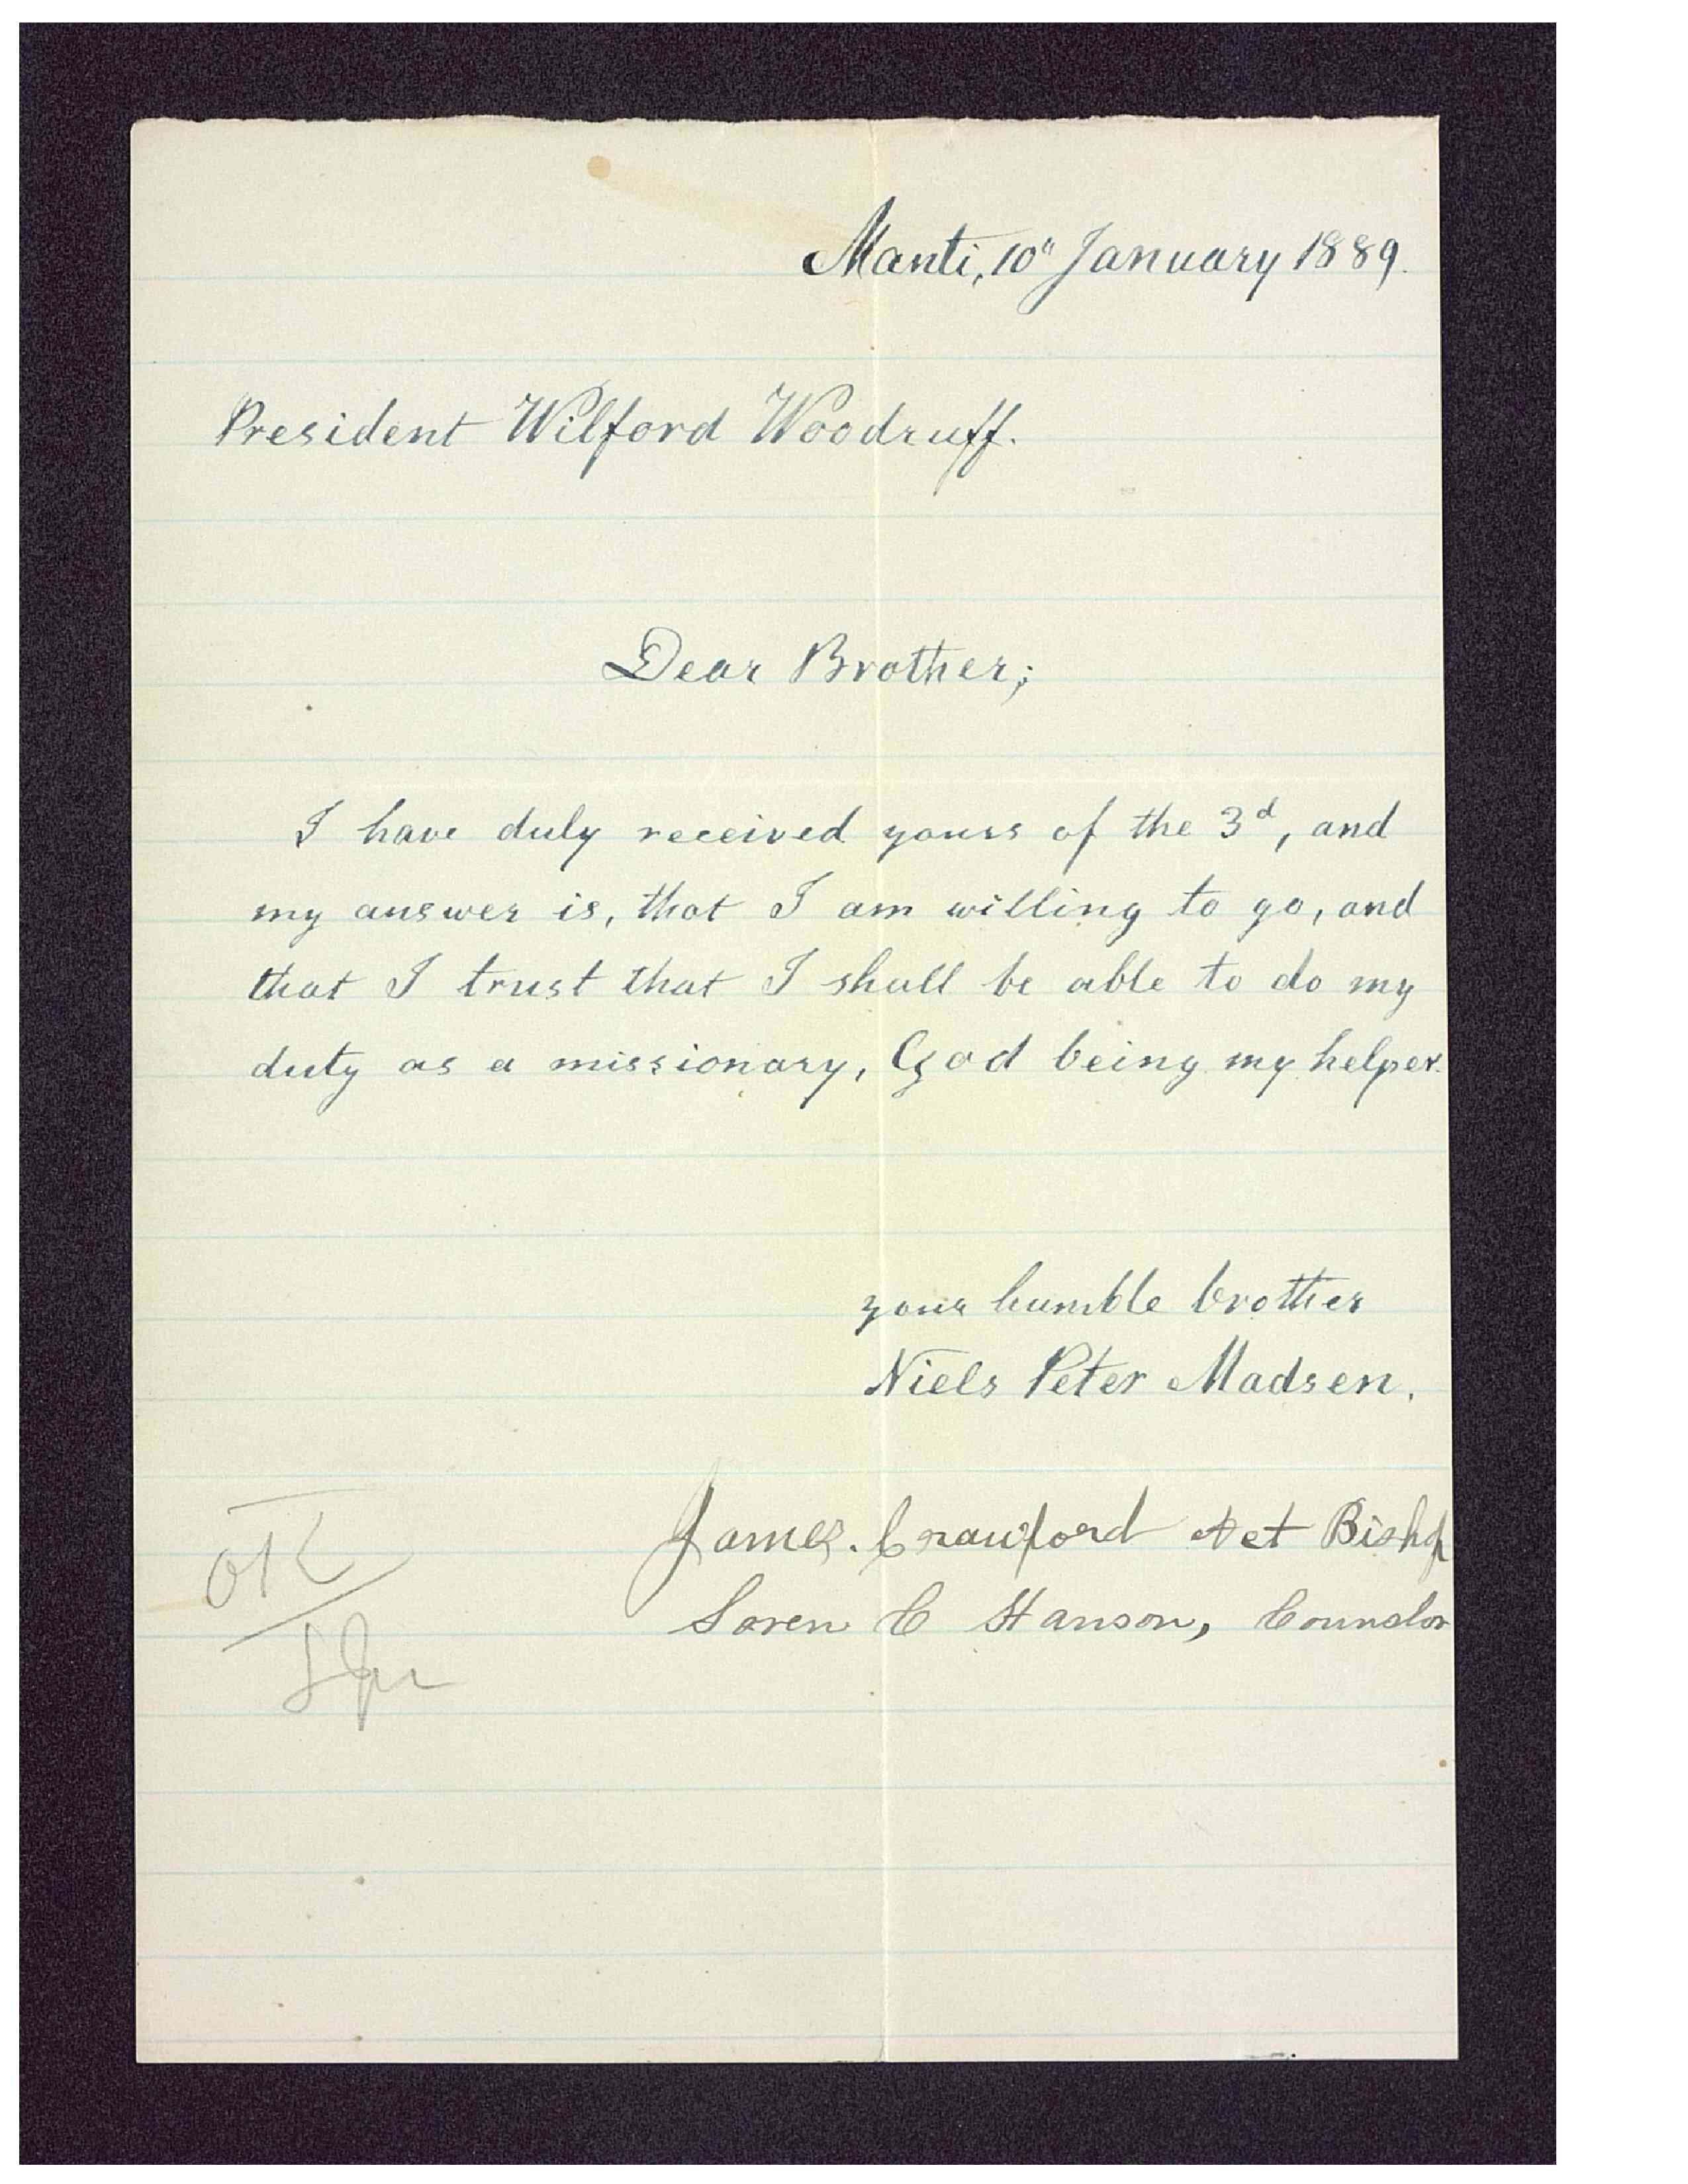 Manti, 10" January 1889.
President Wilford Woodruff.
Dear Brother;
I have duly received yours of the 3d, and
my answer is, that I am willing to go, and
that I trust that I shall be able to do my
duty as a missionary, God being my helper.
your humble brother
Niels Peter Madsen.
James. Crawford Act Bishop
Soren C Hanson, Counslor
OK